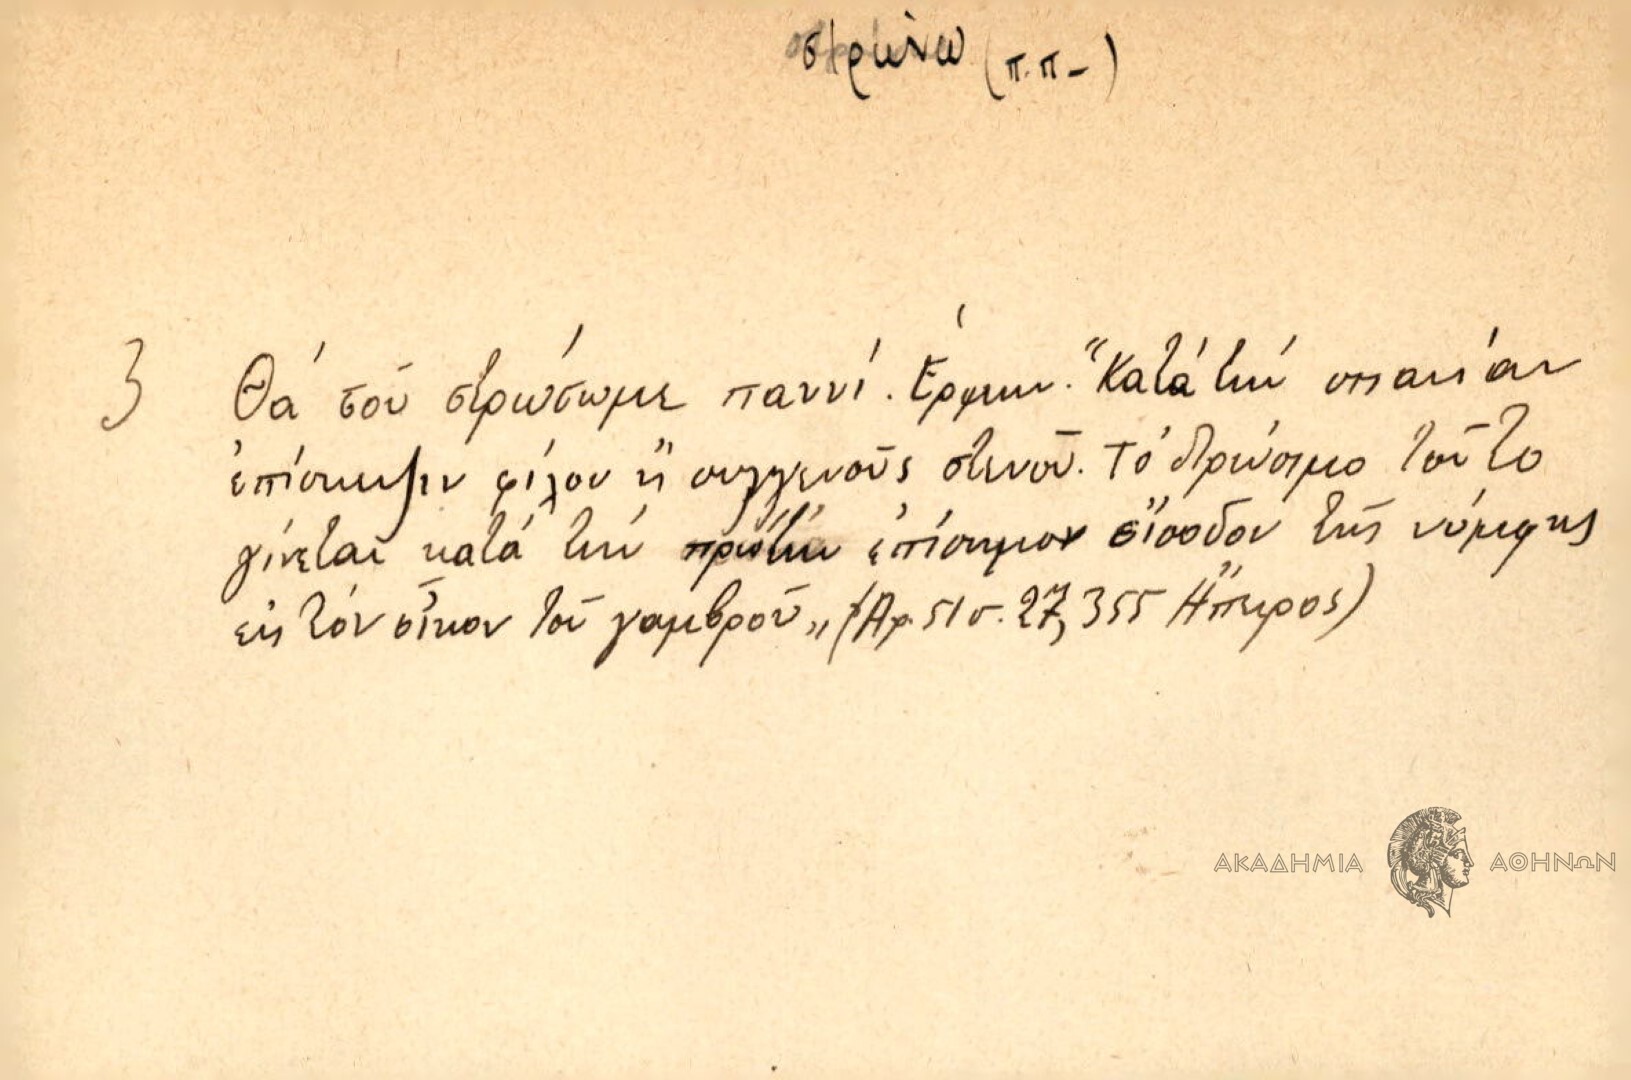 στρώνω (π.π-)
3 Θά σοῦ στρώσωμε παννί. Ἑρμην. "Κατά τήν σπανίαν
ἐπίσκεψιν φίλου ἤ συγγενοῦς στενοῦ. Τό στρώσιμο τοῦτο
γίνεται κατά τήν πρώτην ἐπίσημον εἴσοδον τῆς νύμφης
εἰς τόν οἶκον τοῦ γαμβροῦ" (Ἀρ. 51 σ. 27, 355 Ἤπειρος)
ΑΚΑΔΗΜΙΑ ΑΘΗΝΩΝ